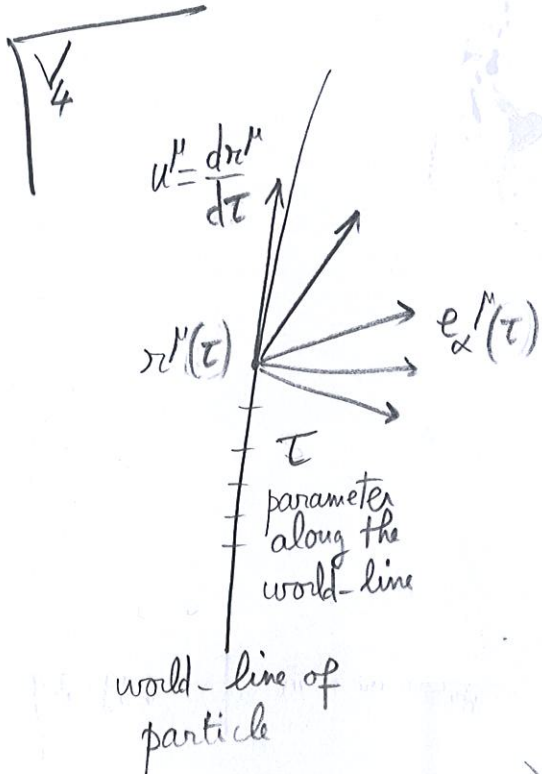 V₄
u^μ = dx^μ/dτ
x^μ(τ)
e_α^μ(τ)
τ
parameter
along the
world-line
world-line of
particle